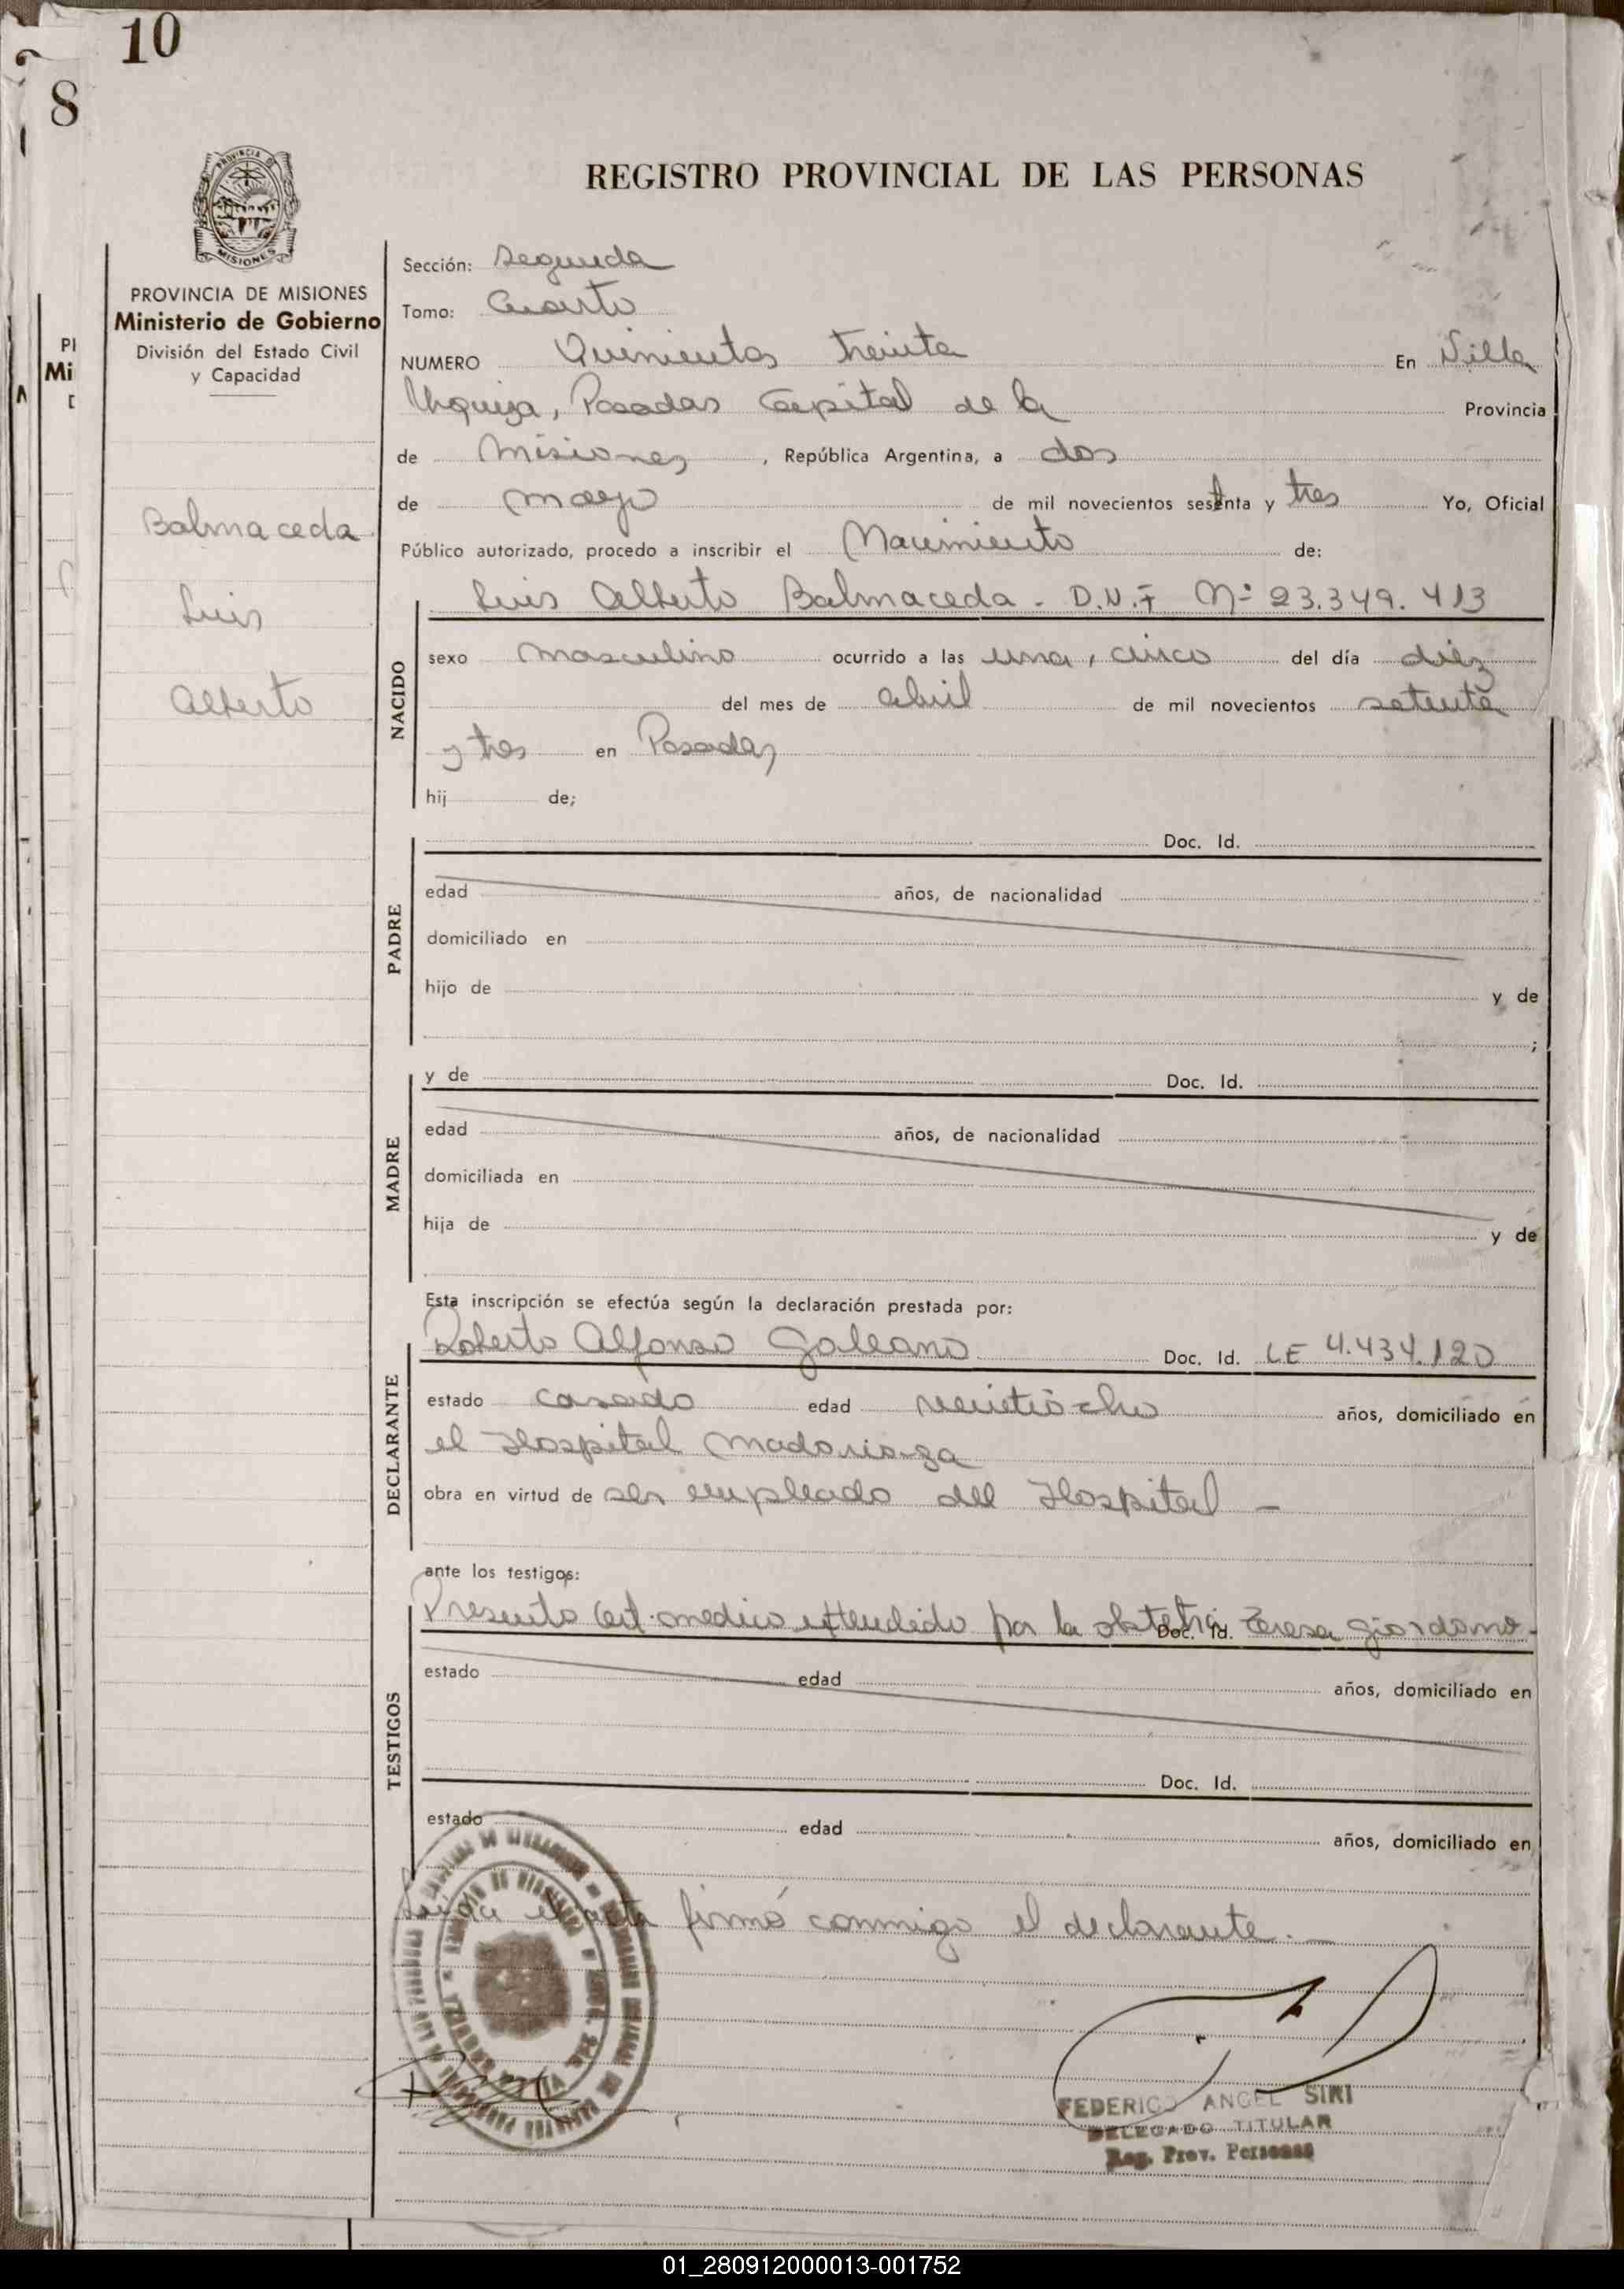 10
8
REGISTRO PROVINCIAL DE LAS PERSONAS
PROVINCIA DE
MISIONES
PROVINCIA DE MISIONES
Ministerio de Gobierno
División del Estado Civil
y Capacidad
Balmaceda
Luis
Alberto
Sección: Segunda
Tomo: Cuarto
NUMERO Quinientos treinta En Villa
Urquiza, Posadas Capital de la Provincia
de Misiones, República Argentina, a dos
de mayo de mil novecientos setenta y tres Yo, Oficial
Público autorizado, procedo a inscribir el Nacimiento de:
NACIDO
Luis Alberto Balmaceda - D.N.I Nº 23.349.413
sexo masculino ocurrido a las una, cinco del día diez
del mes de abril de mil novecientos setenta
y tres en Posadas
hij de;
PADRE
Doc. Id.
edad años, de nacionalidad
domiciliado en
hijo de y de
;
MADRE
y de Doc. Id.
edad años, de nacionalidad
domiciliada en
hija de y de
Esta inscripción se efectúa según la declaración prestada por:
DECLARANTE
Roberto Alfonso Galeano Doc. Id. LE 4.434.120
estado casado edad veintiocho años, domiciliado en
el Hospital Madariaga
obra en virtud de ser empleado del Hospital -
ante los testigos:
TESTIGOS
Presento Cert. medico extendido por la obstetra Doc. Id. Teresa Giordano -
estado edad años, domiciliado en
Doc. Id.
estado edad años, domiciliado en
Leida el acta firmó conmigo el declarante. -
FEDERICO ANGEL SIRI
DELEGADO TITULAR
Reg. Prov. Personas
PI
Mi
01_280912000013-001752